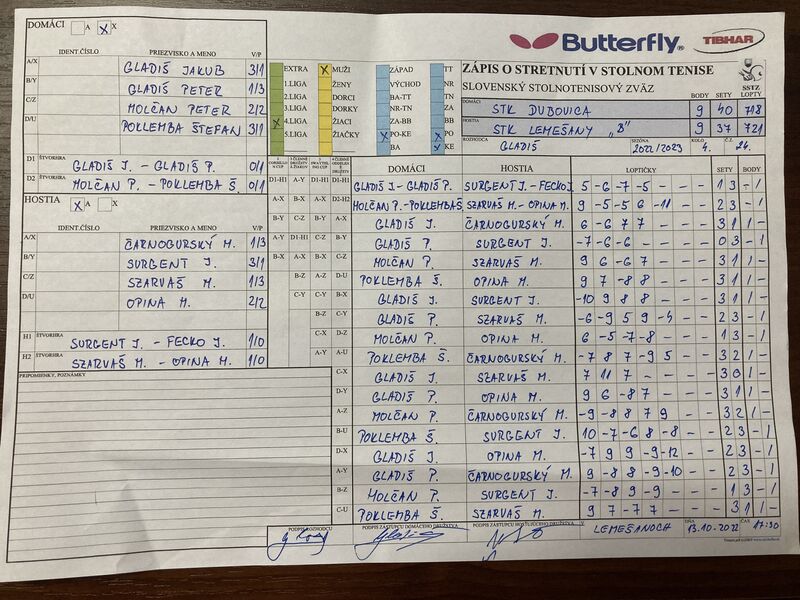 DOMÁCI A X X
Butterfly TIBHAR
IDENT.ČÍSLO PRIEZVISKO A MENO V/P
A/X GLADIŠ JAKUB 3/1
B/Y GLADIŠ PETER 1/3
C/Z MOLČAN PETER 2/2
D/U POKLEMBA ŠTEFAN 3/1
D1 ŠTVORHRA GLADIŠ J. - GLADIŠ P. 0/1
D2 ŠTVORHRA MOLČAN P. - POKLEMBA Š. 0/1
EXTRA X MUŽI ZÁPAD TT
1.LIGA ŽENY VÝCHOD NR
2.LIGA DORCI BA-TT TN
3.LIGA DORKY NR-TN ZA
X 4.LIGA ŽIACI ZA-BB BB
5.LIGA ŽIAČKY X PO-KE X PO
BA X KE
ZÁPIS O STRETNUTÍ V STOLNOM TENISE
SLOVENSKÝ STOLNOTENISOVÝ ZVÄZ SSTZ
BODY SETY LOPTY
DOMÁCI STK DUBOVICA 9 40 718
HOSTIA STK LEMEŠANY "B" 9 37 721
ROZHODCA GLADIŠ SEZÓNA 2022/2023 KOLO 4. Č.Z. 24.
HOSTIA X A X
IDENT.ČÍSLO PRIEZVISKO A MENO V/P
A/X ČARNOGURSKÝ M. 1/3
B/Y SURGENT J. 3/1
C/Z SZARVAŠ M. 1/3
D/U OPINA M. 2/2
H1 ŠTVORHRA SURGENT J. - FECKO J. 1/0
H2 ŠTVORHRA SZARVAŠ M. - OPINA M. 1/0
PRIPOMIENKY, POZNÁMKY
DOMÁCI HOSTIA LOPTIČKY SETY BODY
D1-H1 A-Y D1-H1 D1-H1 GLADIŠ J - GLADIŠ P. SURGENT J. - FECKO J 5 -6 -7 -5 - - - 1 3 - 1
A-X B-X A-X D2-H2 MOLČAN P. - POKLEMBA Š SZARVAŠ M. - OPINA M. 9 -5 -5 6 -11 - - 2 3 - 1
B-Y C-Z B-Y A-X GLADIŠ J. ČARNOGURSKÝ M. 6 -6 7 7 - - - 3 1 1 -
A-Y D1-H1 C-Z B-Y GLADIŠ P. SURGENT J. -7 -6 -6 - - - - 0 3 - 1
B-X A-X B-X C-Z MOLČAN P. SZARVAŠ M. 9 6 -6 7 - - - 3 1 1 -
B-Z A-Z D-U POKLEMBA Š. OPINA M. 9 7 -8 8 - - - 3 1 1 -
C-Y C-Y B-X GLADIŠ J. SURGENT J. -10 9 8 8 - - - 3 1 1 -
B-Z C-Y GLADIŠ P. SZARVAŠ M. -6 -9 5 9 - - 2 3 - 1
C-X D-Z MOLČAN P. OPINA M. 6 -5 -7 -8 - - - 1 3 - 1
A-Y A-U POKLEMBA Š. ČARNOGURSKÝ M. -7 8 7 -9 5 - - 3 2 1 -
C-X GLADIŠ J. SZARVAŠ M. 7 11 7 - - - - 3 0 1 -
D-Y GLADIŠ P. OPINA M. 9 6 -8 7 - - - 3 1 1 -
A-Z MOLČAN P. ČARNOGURSKÝ M. -9 -8 8 7 9 - - 3 2 1 -
B-U POKLEMBA Š. SURGENT J. 10 -7 -6 8 -8 - - 2 3 - 1
D-X GLADIŠ J. OPINA M. -7 9 9 -9 -12 - - 2 3 - 1
A-Y GLADIŠ P. ČARNOGURSKÝ M. 9 -8 8 -9 -10 - - 2 3 - 1
B-Z MOLČAN P. SURGENT J. -7 -8 9 -9 - - - 1 3 - 1
C-U POKLEMBA Š. SZARVAŠ M. 9 7 -7 7 - - - 3 1 1 -
PODPIS ROZHODCU PODPIS ZÁSTUPCU DOMÁCEHO DRUŽSTVA PODPIS ZÁSTUPCU HOSŤUJÚCEHO DRUŽSTVA V LEMEŠANOCH DŇA 13.10.2022 ČAS 17:30